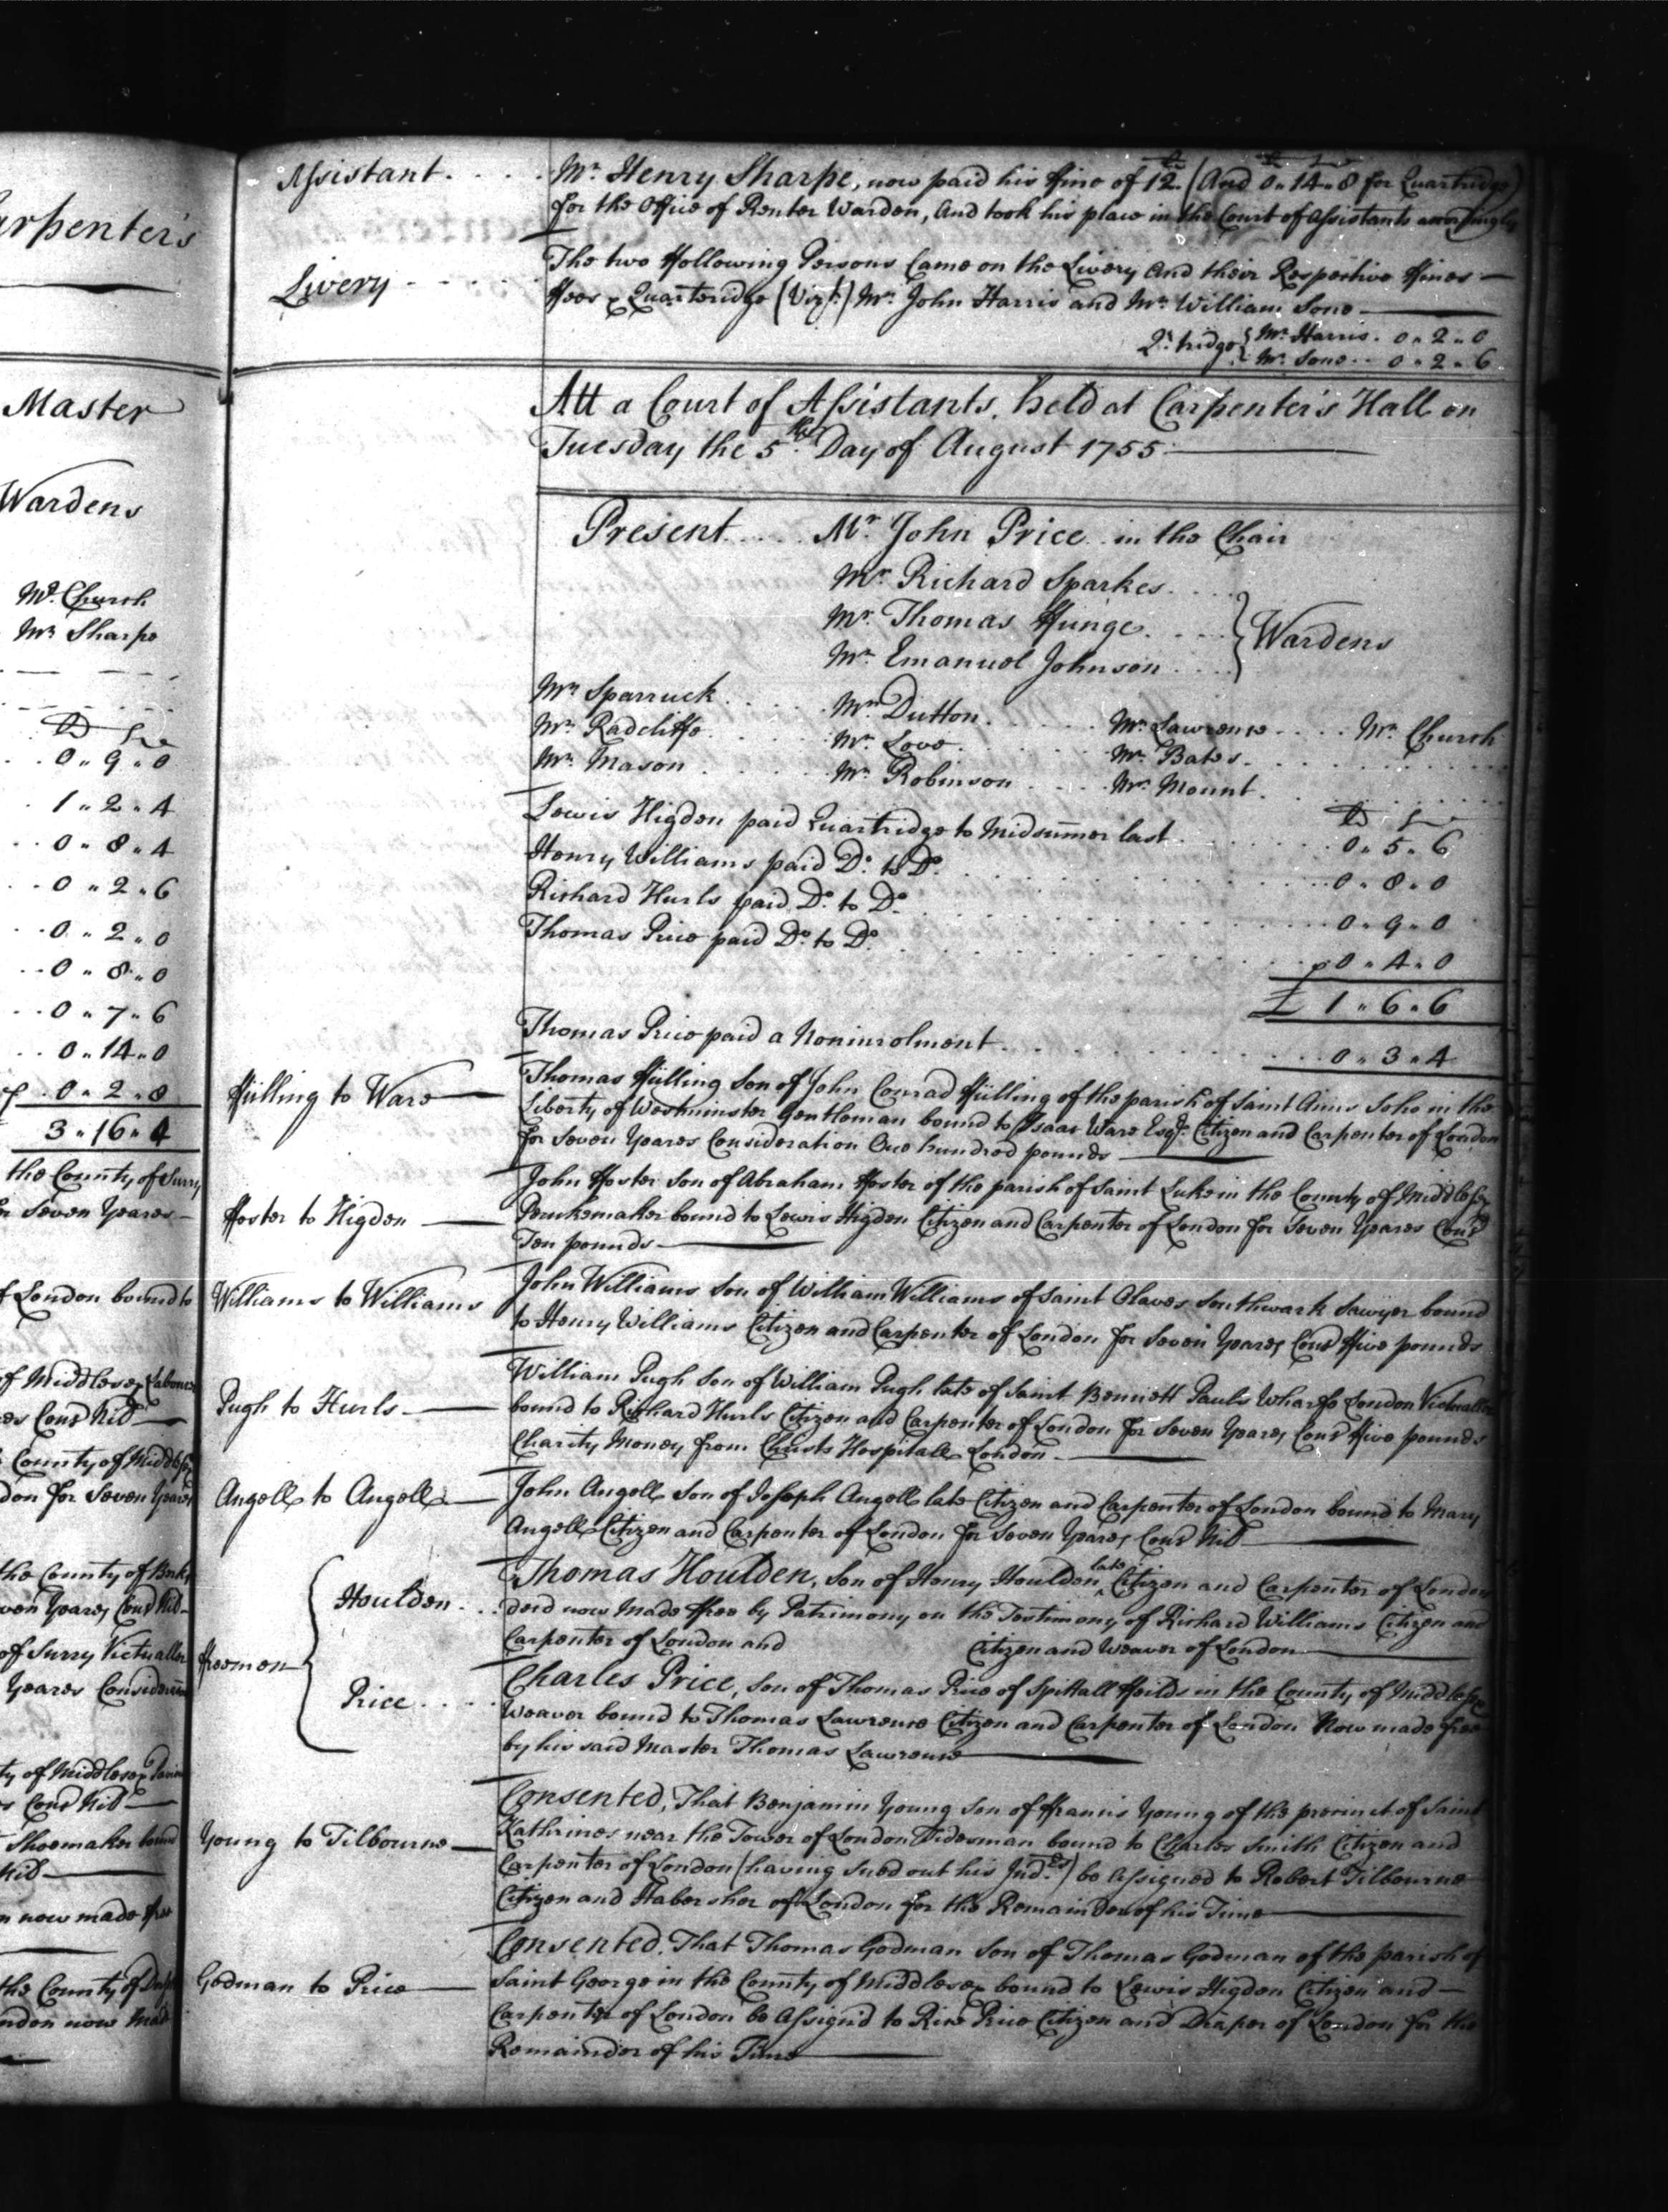 arpenter's
Master
Wardens
Mr. Church
Mr. Sharpe
0 " 9 " 0
1 " 2 " 4
0 " 8 " 4
0 " 2 " 6
0 " 2 " 0
0 " 8 " 0
0 " 7 " 6
0 " 14 " 0
0 " 2 " 8
3 " 16 " 4
the County of Surry
Seven Yeares
of London bound to
of Middlesex Laboure
Cons Nil
County of Middlesex
don for Seven Yeares
the County of Berks
ven Yeares Cons Nil
of Surry Victualler
Yeares Consideration
ty of Middlesex
Cons Nil
Shoemaker bound
Nil
n now made free
the County of
ndon now Made
Assistant
Mr. Henry Sharpe, now paid his ffine of 12 (And 0 " 14 " 8 for Quartridge)
for the Office of Renter Warden, And took his place in the Court of Assistants accordingly
Livery
The two ffollowing Persons Came on the Livery And their Respective ffines
ffees & Quarteridge (Vizt.) Mr. John Harris and Mr. William Sone
Qr. tridge { Mr. Harris . 0 " 2 " 0
Mr. Sone . . 0 " 2 " 6
Att a Court of Assistants, held at Carpenter's Hall on
Tuesday the 5th. Day of August 1755
Present . . . . Mr. John Price in the Chair
Mr. Richard Sparkes
Mr. Thomas ffunge
Mr. Emanuel Johnson } Wardens
Mr. Sparruck . . . . Mr. Dutton . . . . Mr. Lawrence . . . . Mr. Church
Mr. Radcliffe . . . . Mr. Love . . . . Mr. Bates
Mr. Mason . . . . Mr. Robinson . . . . Mr. Mount
Lewis Higden paid Quartridge to Midsummer last . . . . 0 " 5 " 6
Henry Williams paid Do. to Do. . . . . 0 " 8 " 0
Richard Hurls paid Do. to Do. . . . . 0 " 9 " 0
Thomas Price paid Do. to Do. . . . . 0 " 4 " 0
£ 1 " 6 " 6
Thomas Price paid a Noninrolment . . . . 0 " 3 " 4
ffülling to Ware
Thomas ffülling Son of John Conrad ffülling of the parish of Saint Anns Soho in the
Liberty of Westminster Gentleman bound to Isaac Ware Esqr. Citizen and Carpenter of London
for Seven Yeares Consideration One hundred pounds
ffoster to Higden
John ffoster Son of Abraham ffoster of the parish of Saint Luke in the County of Middlesex
Perukemaker bound to Lewis Higden Citizen and Carpenter of London for Seven Yeares Cons
Ten pounds
Williams to Williams
John Williams Son of William Williams of Saint Olaves Southwark Sawyer bound
to Henry Williams Citizen and Carpenter of London for Seven Yeares Cons ffive pounds
Pugh to Hurls
William Pugh Son of William Pugh late of Saint Bennett Pauls Wharfe London Victualler
bound to Richard Hurls Citizen and Carpenter of London for Seven Yeares Cons ffive pounds
Charity Money from Christs Hospitall London
Angell to Angell
John Angell Son of Joseph Angell late Citizen and Carpenter of London bound to Mary
Angell Citizen and Carpenter of London for Seven Yeares Cons Nil
ffreemen
Houlden
Thomas Houlden, Son of Henry Houlden late Citizen and Carpenter of London
decd now Made ffree by Patrimony on the Testimony of Richard Williams Citizen and
Carpenter of London and Citizen and Weaver of London
Price
Charles Price, Son of Thomas Price of Spittall ffeilds in the County of Middlesex
Weaver bound to Thomas Lawrence Citizen and Carpenter of London Now made free
by his said Master Thomas Lawrence
Young to Tilbourne
Consented, That Benjamin Young Son of ffrancis Young of the precinct of Saint
Kathrines near the Tower of London Tidesman bound to Charles Smith Citizen and
Carpenter of London (having Sued out his Inds.) be Assigned to Robert Tilbourne
Citizen and Habersher of London for the Remainder of his Time
Godman to Price
Consented, That Thomas Godman Son of Thomas Godman of the parish of
Saint George in the County of Middlesex bound to Lewis Higden Citizen and
Carpenter of London be Assign'd to Rice Price Citizen and Draper of London for the
Remainder of his Time